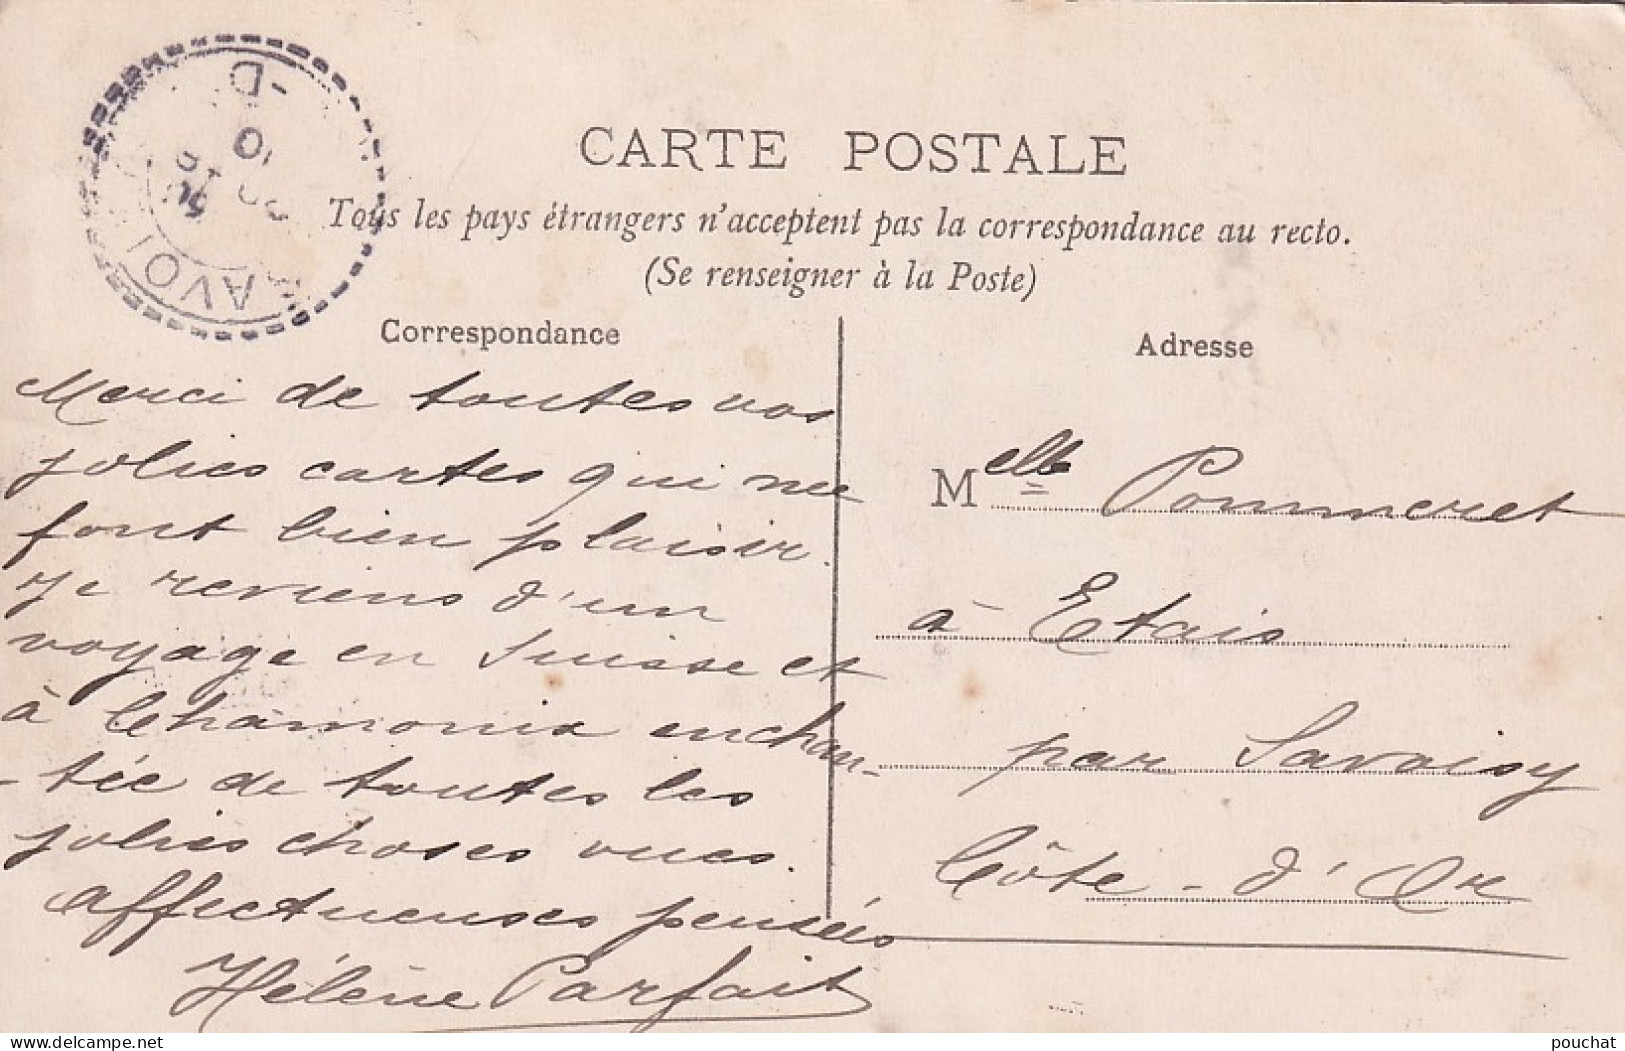 CARTE POSTALE
Tous les pays étrangers n'acceptent pas la correspondance au recto.
(Se renseigner à la Poste)
Correspondance
Merci de toutes vos
jolies cartes qui me
font bien plaisir.
Je reviens d'un
voyage en Suisse et
à Chamonix enchan-
-tée de toutes les
jolies choses vues.
affectueuses pensées
Hélène Parfait
Adresse
Melle Pommeret
à Etais
par Savoisy
Côte-d'Or
delcampe.net
pouchat